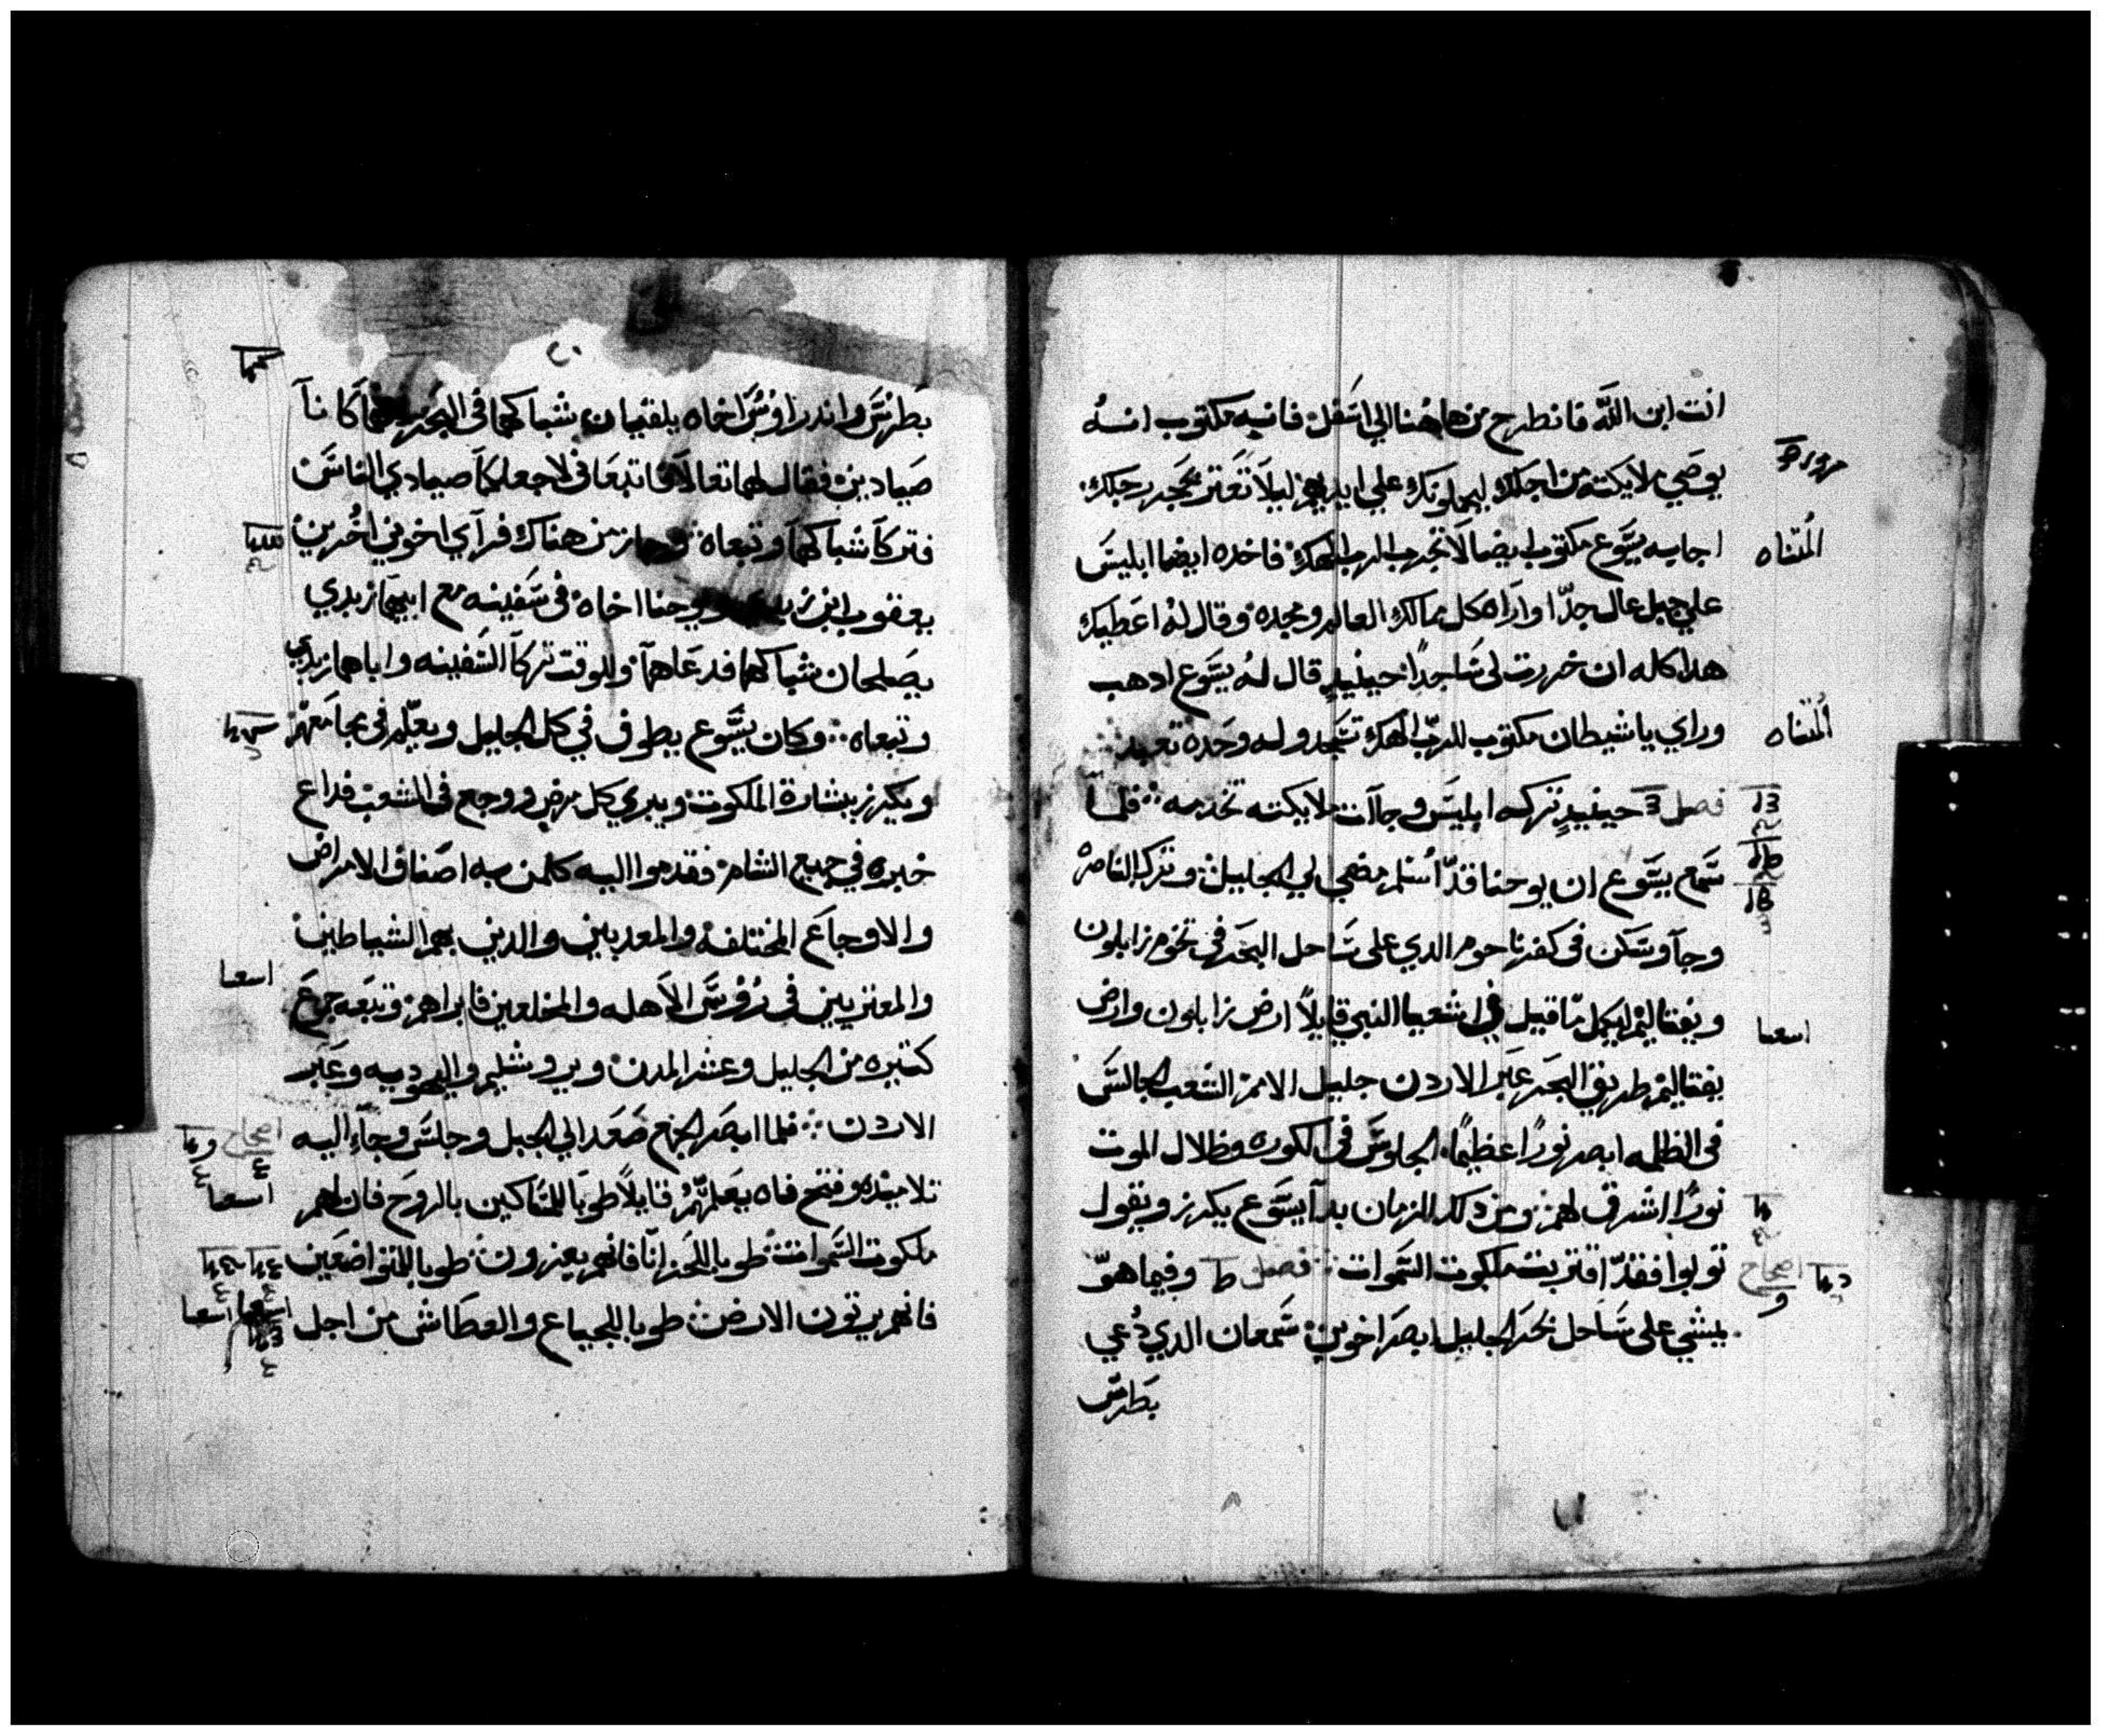 انت ابن اللّه فانطرح من هاهنا الي اسفل فانه مكتوب انه
يوصي ملايكته من اجلك ليحملونك علي ايديهم ليلا تعتر بحجر رجلك
اجابه يسوع مكتوب ايضا لا تجرب الرب الهك فاخده ايضا ابليس
المتناه
علي جبل عال جدّا واراه كل ممالك العالم ومجده وقال له اعطيك
هدا كله ان خررت لي ساجدًا حينيدٍ قال له يسوع ادهب
وراي يا شيطان مكتوب للربّ الهك تسجد وله وحده تعبد
المتناه
فصل حينيدٍ تركه ابليس وجاآت ملايكته تخدمه فلما
سمع يسوع ان يوحنا قدّ اسلم مضي الي الجليل وترك الناصره
وجآ وسكن في كفرناحوم الدي علي ساحل البحر في تخوم زابلون
ونفتاليم ليكمل ما قيل في اشعيا النبي قايلاً ارض زابلون وارض
اسعيا
نفتاليم طريق البحر عبر الاردن جليل الامم الشعب الجالس
في الظلمه ابصر نورًا عظيمًا الجلوس في الكوره وظلال الموت
نورًا اشرق لهم ومن دلك الزمان بدآ يسوع يكرز ويقول
توبوا فقدّ اقتربت ملكوت السموات فصل وفيما هوّ
اصحاح
يمشي علي ساحل بحر الجليل ابصر اخوين سمعان الدي دُعي
بطرس
٢٠
بطرس واندراوس اخاه يلقيان شباكهما في البحر لانهما كانآ
صيادين فقال لهما تعالا فاتبعاني لاجعلكما صيادي الناس
فتركا شباكهما وتبعاه وجاز من هناك فرآي اخوين اخرين
يعقوب ابن ويوحنا اخاه في سفينه مع ابيهما زبدي
يصلحان شباكهما فدعاهمآ وللوقت تركآ السفينه واباهما زبدي
وتبعاه وكان يسوع يطوف في كل الجليل ويعلّم في مجامعهم
ويكرز ببشارة الملكوت ويبري كل مرض ووجع في الشعب فداع
خبره في جميع الشام فقدموا اليه كلمن به اصناف الامراض
والاوجاع المختلفه والمعدبين والدين بهم الشياطين
والمعتريين في رؤوس الاهله والمخلعين فابراهم وتبعه جموع
اسعيا
كتيره من الجليل وعشر المدن ويروشليم واليهوديه وعبر
الاردن فلما ابصر الجمع صعد الي الجبل وجلس وجاء اليه
اصحاح
تلاميده وفتح فاه يعلمهم قايلاً طوبا للمساكين بالروح فان لهم
اسعيا
ملكوت السموات طوبا للحزانّا فانهم يعزون طوبا للمتواضعين
فانهم يرتون الارض طوبا للجياع والعطاش من اجل
اسعيا